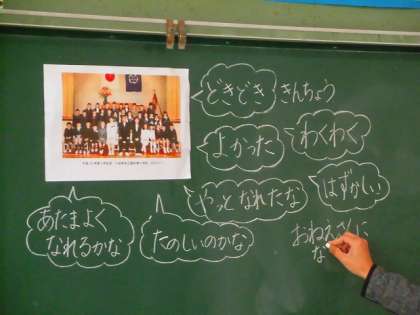 どきどき
きんちょう
よかった
わくわく
やっと なれたな
はずかしい
あたまよく
なれるかな
たのしいのかな
おねえさんに
な